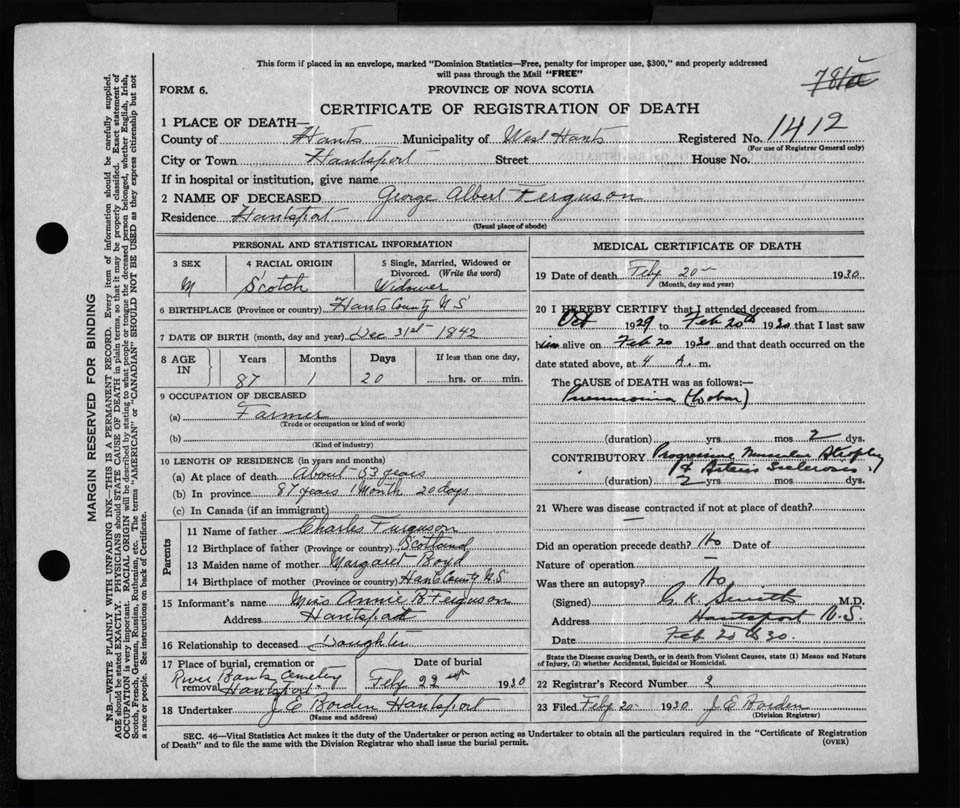 This form if placed in an envelope, marked "Dominion Statistics—Free, penalty for improper use, $300," and properly addressed
will pass through the Mail "FREE"
FORM 6.
PROVINCE OF NOVA SCOTIA
CERTIFICATE OF REGISTRATION OF DEATH
1 PLACE OF DEATH—
County of Hants Municipality of West Hants Registered No. 1412
(For use of Registrar General only)
City or Town Hantsport Street House No.
If in hospital or institution, give name
2 NAME OF DECEASED George Albert Ferguson
Residence Hantsport
(Usual place of abode)
PERSONAL AND STATISTICAL INFORMATION
3 SEX 4 RACIAL ORIGIN 5 Single, Married, Widowed or
Divorced. (Write the word)
M Scotch Widower
6 BIRTHPLACE (Province or country) Hants County N S
7 DATE OF BIRTH (month, day and year) Dec 31st 1842
8 AGE IN Years Months Days If less than one day,
87 1 20 hrs. or min.
9 OCCUPATION OF DECEASED
(a) Farmer
(Trade or occupation or kind of work)
(b)
(Kind of industry)
10 LENGTH OF RESIDENCE (in years and months)
(a) At place of death About 53 years
(b) In province 87 years 1 Month 20 days
(c) In Canada (if an immigrant)
Parents
11 Name of father Charles Furguson
12 Birthplace of father (Province or country) Scotland
13 Maiden name of mother Margaret Boyd
14 Birthplace of mother (Province or country) Hants County N S
15 Informant's name Miss Annie B Ferguson
Address Hantsport
16 Relationship to deceased Daughter
17 Place of burial, cremation or Date of burial
River Bank Cemetery
removal Hantsport Feby 22 1930
18 Undertaker J E Borden Hantsport
(Name and address)
MEDICAL CERTIFICATE OF DEATH
19 Date of death Feby 20 1930
(Month, day and year)
20 I HEREBY CERTIFY that I attended deceased from
Oct 1929 to Feb 20th 1930 that I last saw
him alive on Feb 20 1930 and that death occurred on the
date stated above, at 4 A. m.
The CAUSE OF DEATH was as follows:—
Pneumonia (Lobar)
(duration) yrs. mos. 2 dys.
CONTRIBUTORY Progressive Muscular Atrophy
& Arterio Sclerosis
(duration) 2 yrs. mos. dys.
21 Where was disease contracted if not at place of death?
Did an operation precede death? No Date of
Nature of operation —
Was there an autopsy? No
(Signed) G K Smith M.D.
Address Hantsport N.S.
Date Feb 20th 30.
State the Disease causing Death, or in death from Violent Causes, state (1) Means and Nature
of Injury, (2) whether Accidental, Suicidal or Homicidal.
22 Registrar's Record Number 2
23 Filed Feby 20 1930 J E Borden
(Division Registrar)
SEC. 46—Vital Statistics Act makes it the duty of the Undertaker or person acting as Undertaker to obtain all the particulars required in the "Certificate of Registration
of Death" and to file the same with the Division Registrar who shall issue the burial permit. (OVER)
MARGIN RESERVED FOR BINDING
N.B.—WRITE PLAINLY WITH UNFADING INK—THIS IS A PERMANENT RECORD. Every item of information should be carefully supplied.
AGE should be stated EXACTLY. PHYSICIANS should STATE CAUSE OF DEATH in plain terms, so that it may be properly classified. Exact statement of
OCCUPATION is very important. RACIAL ORIGIN will be described by stating to what people or tongue the deceased person belonged, whether English, Irish,
Scotch, French, German, Russian, Ruthenian, etc. The terms "AMERICAN" or "CANADIAN" SHOULD NOT BE USED as they express citizenship but not
a race or people. See instructions on back of Certificate.